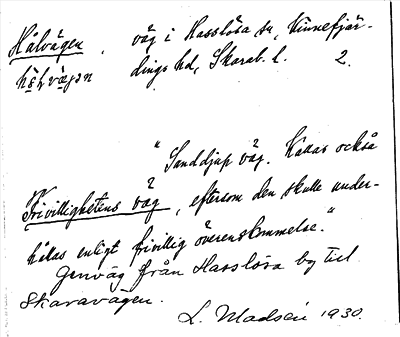 Hålvägen, väg i Hasslösa sn, Kinnefjär-
dings hd, Skarab. l. 2.
"Sanddjup väg. Kallas också
Frivillighetens väg, eftersom den skulle under-
hålas enligt frivillig överenskommelse."
Genväg från Hasslösa by till
Skaravägen.
L. Madsén 1930.